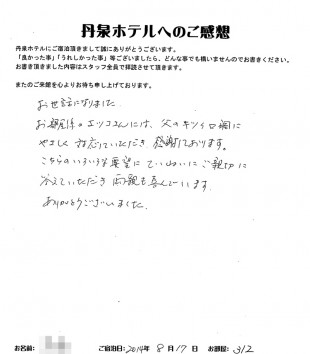 丹泉ホテルへのご感想
丹泉ホテルにご宿泊頂きまして誠にありがとうございます。
「良かった事」「うれしかった事」等ございましたら、どんな事でも構いませんのでお書きください。
お書き頂きました内容はスタッフ全員で拝読させて頂きます。
またのご来館を心よりお待ち申し上げております。
お世話になりました。
お部屋係のエツコさんには、父のキツイ口調に
やさしく対応していただき感謝しております。
こちらのいろいろな要望にていねいにご親切に
答えていただき両親も喜んでいます。
ありがとうございました。
お名前: ご宿泊日: 2014年 8月 17日 お部屋: 312